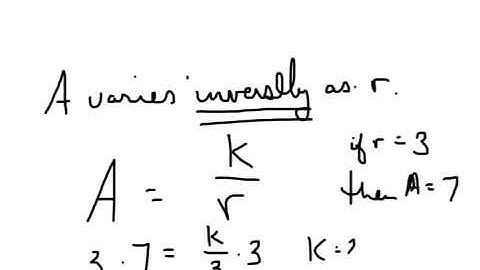 A varies inversely as r.
A = k/r
if r = 3
then A = 7
3 · 7 = k/3 · 3
K =